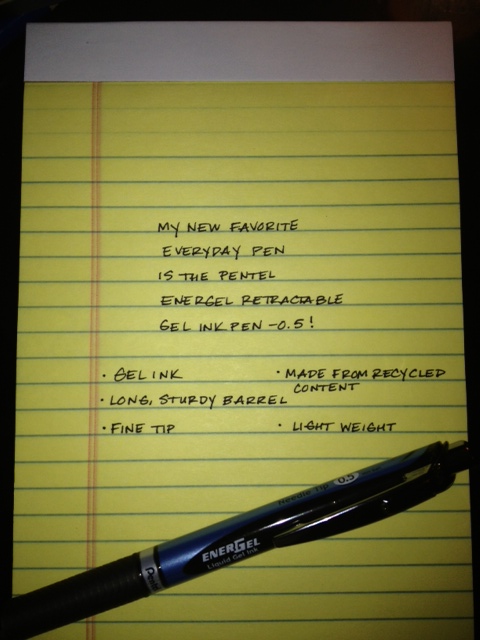 MY NEW FAVORITE
EVERYDAY PEN
IS THE PENTEL
ENERGEL RETRACTABLE
GEL INK PEN -0.5!
· GEL INK
· MADE FROM RECYCLED
CONTENT
· LONG, STURDY BARREL
· FINE TIP
· LIGHT WEIGHT
Needle Tip 0.5
ENERGEL
Liquid Gel Ink
Pentel